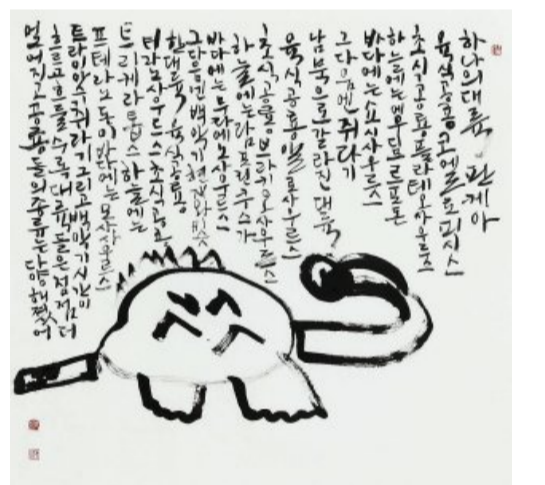 하나의 대륙, 판게아
육식공룡 코엘로피시스
초식공룡 플라테오사우르스
하늘에는 에우디모르포돈
바다에는 쇼니사우르스
그 다음엔 쥐라기
남북으로 갈라진 대륙
육식공룡 알로사우르스
초식공룡 브라키오사우르스
하늘에는 람포린쿠스가
바다에는 무라에노사우르스
그 다음엔 백악기 현재와 비슷
한 대륙, 육식공룡
티라노사우르스 초식공룡은
트리케라톱스 하늘에는
프테라노돈이 바다에는 모사사우르스
트라이아스 쥐라기 그리고 백악기 시간이
흐르고 흐를수록 대륙들은 점점 더
멀어지고 공룡들의 종류는 다양해졌어